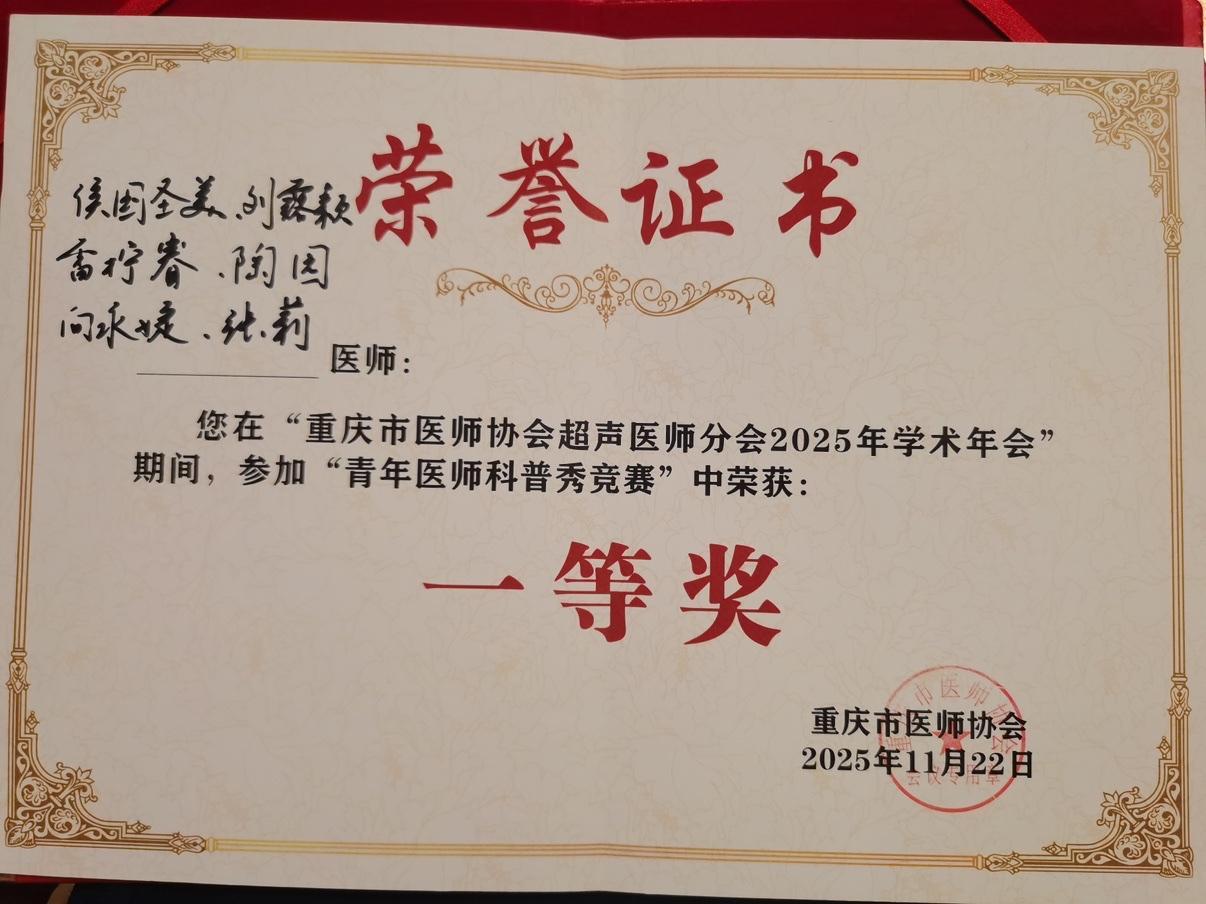 荣誉证书
侯国圣美、刘露颖
雷柠睿、陶园
向永婕、张莉
医师：
您在“重庆市医师协会超声医师分会2025年学术年会”
期间，参加“青年医师科普秀竞赛”中荣获：
一等奖
重庆市医师协会
2025年11月22日
重庆市医师协会
会议专用章